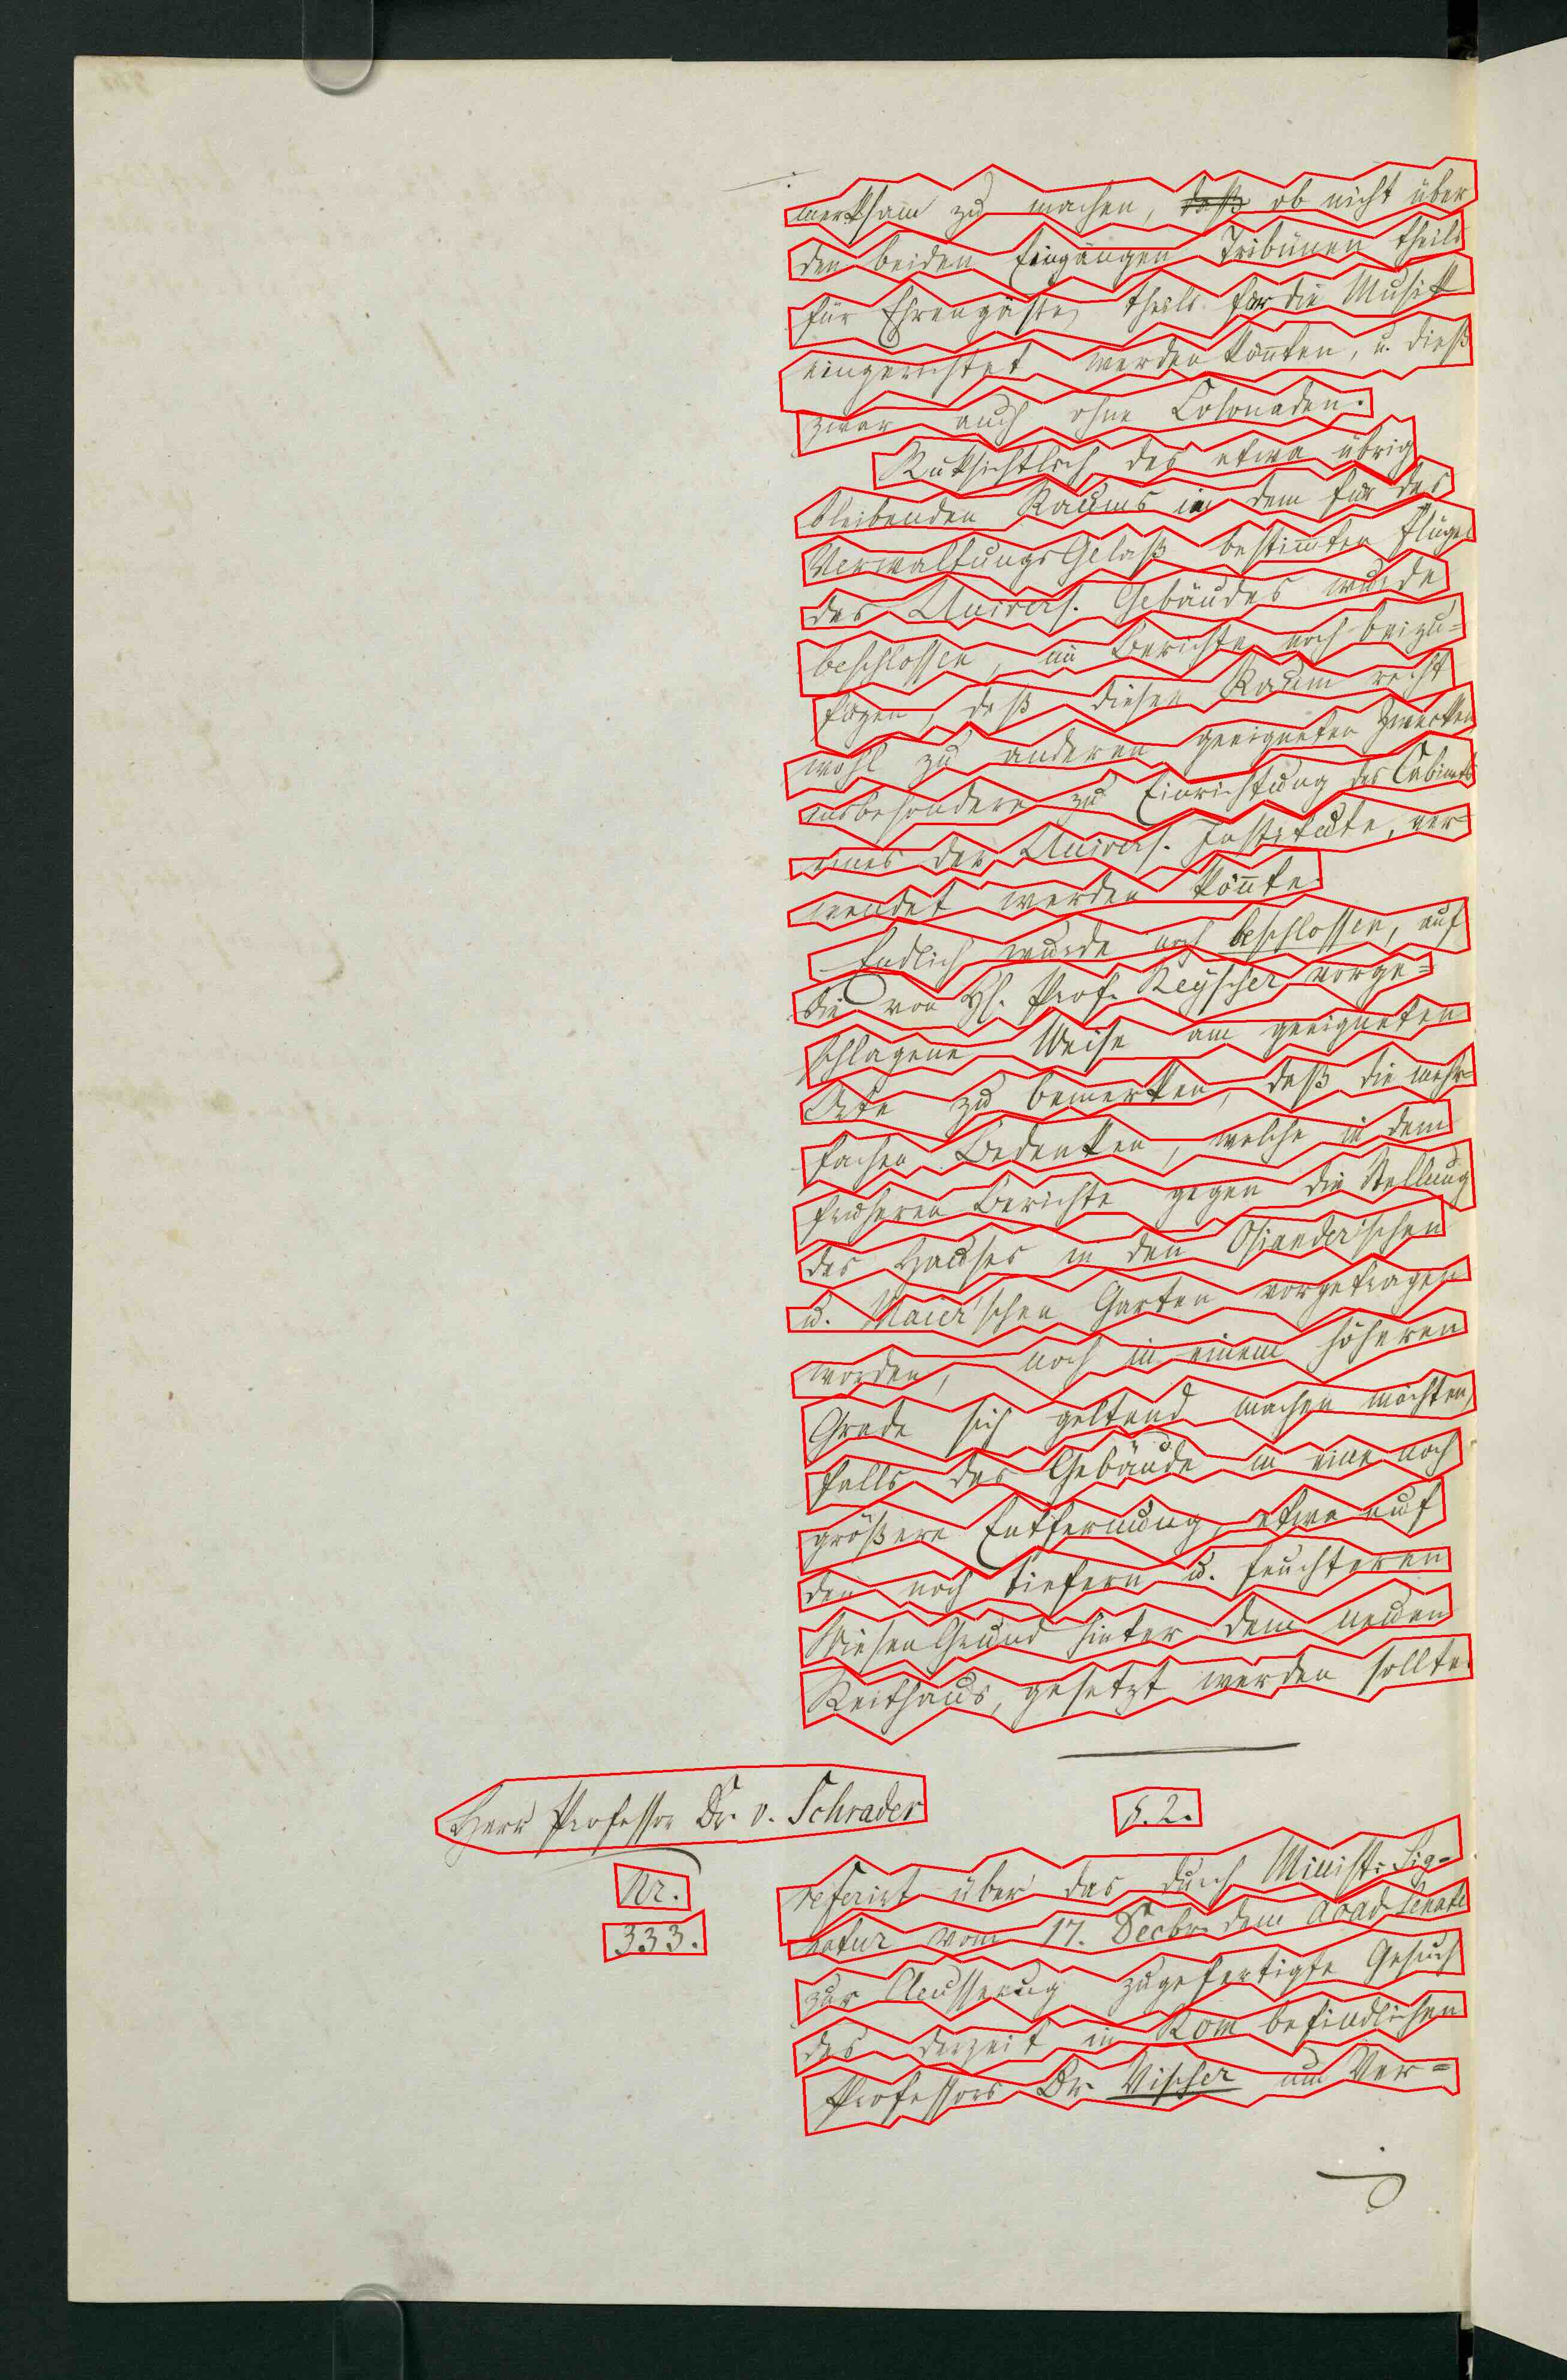 merksam zu machen, daß ob nicht über
den beiden Eingängen Tribünen theils
für Ehrengäste, theils für die Musik
eingerichtet werden könnten, u. dieß
zwar auch ohne Colonaden.
Rüksichtlich des etwa übrig
bleibenden Raums in dem für das
VerwaltungsGelaß bestimmten Flügel
des Univers. Gebäudes wurde
beschlossen, im Berichte noch beizu=
fügen, daß dieser Raum recht
wohl zu anderen geeigneten Zwecken
insbesondere zu Einrichtung des Cabinets
eines der Univers. Institute, ver=
wendet werden könnte.
Endlich wurde noch beschlossen, auf
die von H. Prof. Reyscher vorge=
schlagene Weise am geeigneten
Orte zu bemerken, daß die mehr=
fachen Bedenken, welche in dem
früheren Berichte gegen die Stellung
des Hauses in den Osiander'schen
u. Maier'schen Garten vorgetragen
worden, noch in einem höheren
Grade sich geltend machen möchten,
falls das Gebäude in eine noch
größere Entfernung, etwa auf
den noch tiefern u. feuchteren
WiesenGrund hinter dem neuen
Reithaus, gesetzt werden sollte.
Herr Professor Dr. v. Schrader
§. 2.
Nr.
333.
referirt über das durch Minist. Sig=
natur vom 17. Decbr. dem Acad. Senate
zur Aeusserung zugefertigte Gesuch
des derzeit in Rom befindlichen
Professors Dr. Vischer um Ver=